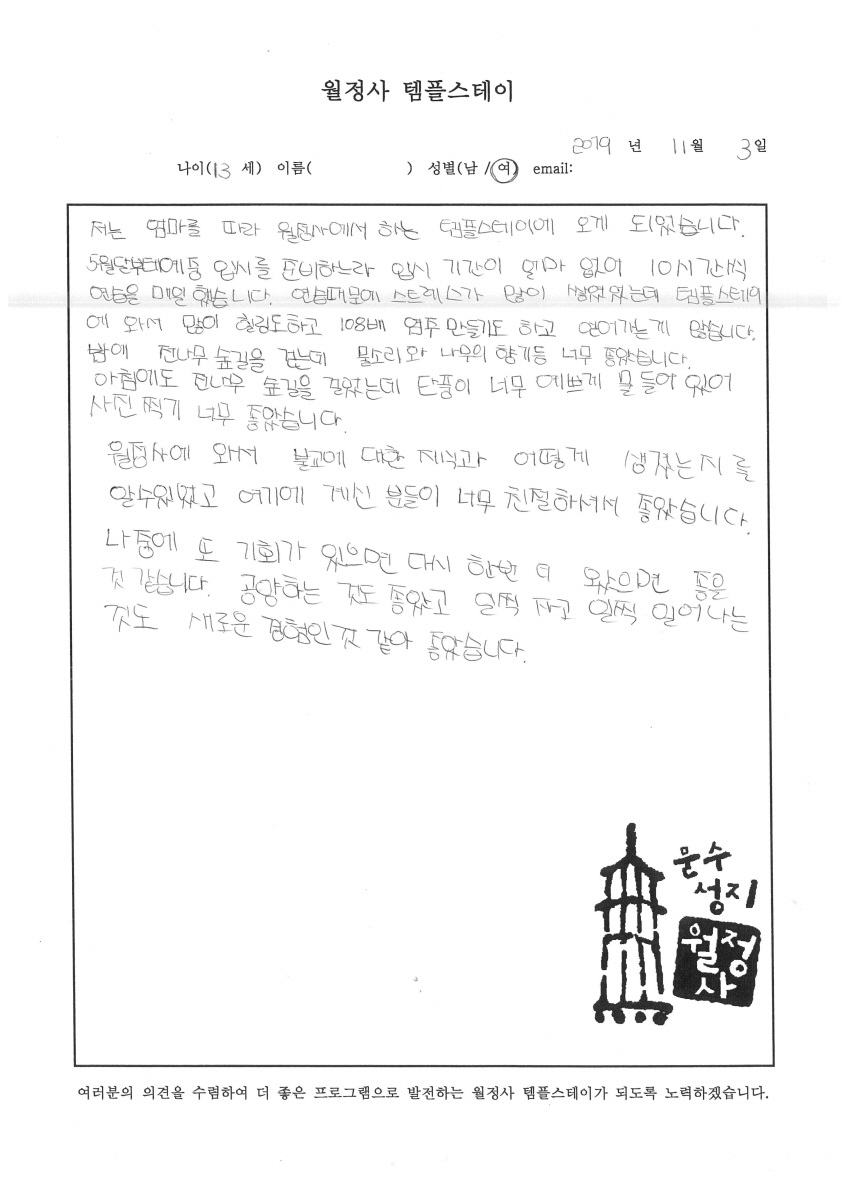 월정사 템플스테이
2019 년 11월 3일
나이(13 세) 이름( ) 성별(남 /여) email:
저는 엄마를 따라 월정사에서 하는 템플스테이에 오게 되었습니다.
5월달부터 입시를 준비하느라 입시 기간이 얼마 없어 10시간씩
연습을 매일 했습니다. 연습때문에 스트레스가 많이 쌓였었는데 템플스테이
에 와서 많이 힐링도하고 108배 염주 만들기도 하고 얻어가는게 많습니다.
밤에 전나무 숲길을 걷는데 물소리와 나무의 향기등 너무 좋았습니다.
아침에도 전나무 숲길을 걸었는데 단풍이 너무 예쁘게 물들어 있어
사진 찍기 너무 좋았습니다.
월정사에 와서 불교에 대한 지식과 어떻게 생겼는지를
알수있었고 여기에 계신 분들이 너무 친절하셔서 좋았습니다.
나중에 또 기회가 있으면 다시 한번 더 왔으면 좋을
것 같습니다. 공양하는 것도 좋았고 일찍 자고 일찍 일어나는
것도 새로운 경험인것 같아 좋았습니다.
문수
성지
월정
사
여러분의 의견을 수렴하여 더 좋은 프로그램으로 발전하는 월정사 템플스테이가 되도록 노력하겠습니다.